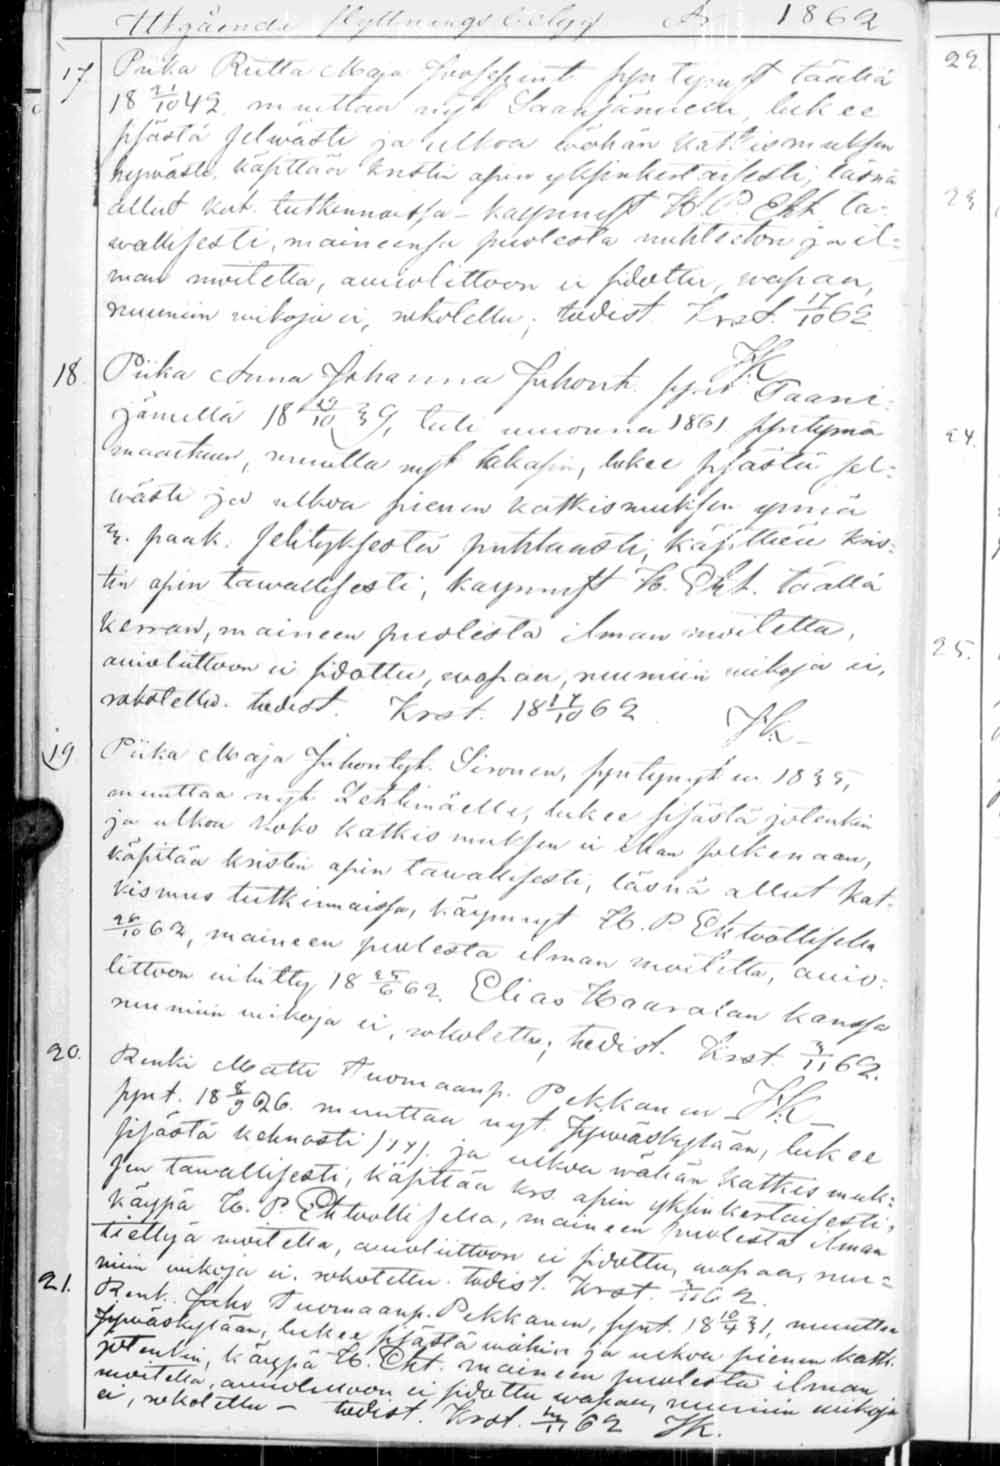 Utgående flyttnings betyg År 1862
17. Piika Riitta Maja Joosepint. syntynyt täällä
18 21/10 42. muuttaa nyt Saarijärvelle, lukee
sisästä selwästi ja ulkoa wähän katkismuksen
hywästi, käsittää kristin opin yksinkertaisesti, läsnä
ollut kat. tutkinnoissa – käynnyt H. P. Eht. ta-
wallisesti, maineensa puolesta nuhteeton ja il-
man moitetta, awioliittoon ei sidottu, wapaa,
ruumiin wikoja ei, rokotettu; todist. Krst. 17/10 62
JK
18. Piika Anna Johanna Juhont. synt. Saari-
järwellä 18 29/10 39, tuli wuonna 1861 syntymä
maastaan, muutta nyt takasin, lukee sisästä sel-
wästi ja ulkoa pienen katkismuksen ynnä
3. paak. selityksestä puhtaasti, käsittää kris-
tin opin tawallisesti, käynnyt H. Eht. täällä
kerran, maineen puolesta ilman moitetta,
awioliittoon ei sidottu, wapaa, ruumiin wikoja ei,
rokotettu. todist. Krst. 18 17/10 62
JK
19. Piika Maja Juhontyt. Sironen, syntynyt w. 1835,
muuttaa nyt Lehtimäelle, lukee sisästä jotenkin
ja ulkoa koko katkismuksen ei ihan
käsitää kristin opin tawallisesti, läsnä ollut kat-
kismus tutkinnoissa, käynnyt H. P. Ehtoollisella
26/10 62, maineen puolesta ilman moitetta, awio-
liittoon wihitty 18 25/6 62. Elias Haaralan kanssa
ruumiin wikoja ei, rokotettu; todist. Krst. 3/11 62.
JK
20. Renki Matti Tuomaanp. Pekkanen
synt. 18 8/9 26. muuttaa nyt Jywäskylään, lukee
sisästä kehnosti ja ulkoa wähän katkismuk-
sen tawallisesti, käsittää krs. opin yksinkertaisesti,
käypä H. P. Ehtoollisella, maineen puolesta ilman
tiettyjä moitetta, awioliittoon ei sidottu, wapaa, ruu-
miin wikoja ei. rokotettu. todist. Krst. 62.
21. Renk. Juho Tuomaanp. Pekkanen, synt. 18 10/4 31, muuttaa
Jywäskylään, lukee sisästä wähin ja ulkoa pienen katk.
jotenkin, käypä H. Eht. maineen puolesta ilman
moitetta, awioliittoon ei sidottu wapaa, ruumiin wikoja
ei, rokotettu – todist. Krst. 62 JK.
22.
23
24.
25.